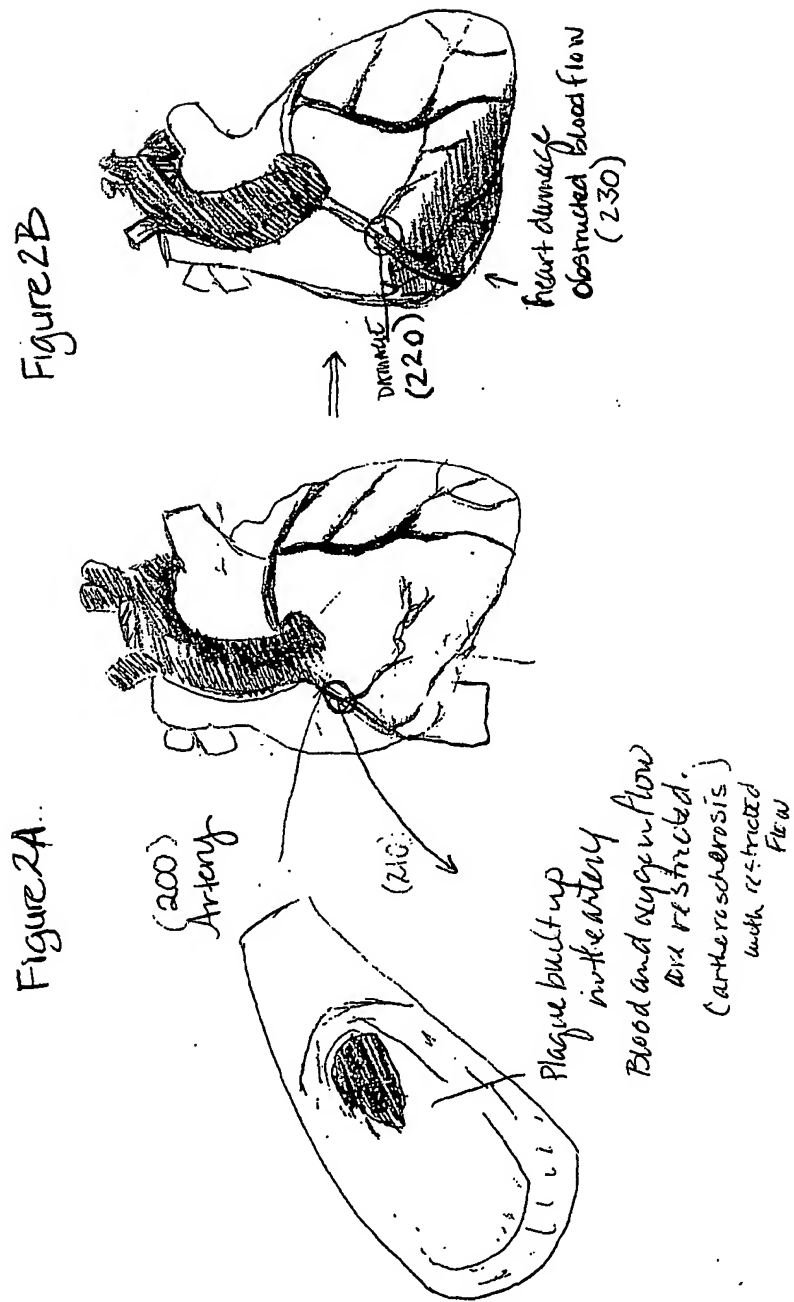 Figure 2A..
(200)
Artery
(210)
Plaque built up
in the artery
Blood and oxygen flow
are restricted.
(artheroscherosis)
with restricted
Flow
Figure 2B
DAMAGE
(220)
heart damage
obstructed blood flow
(230)